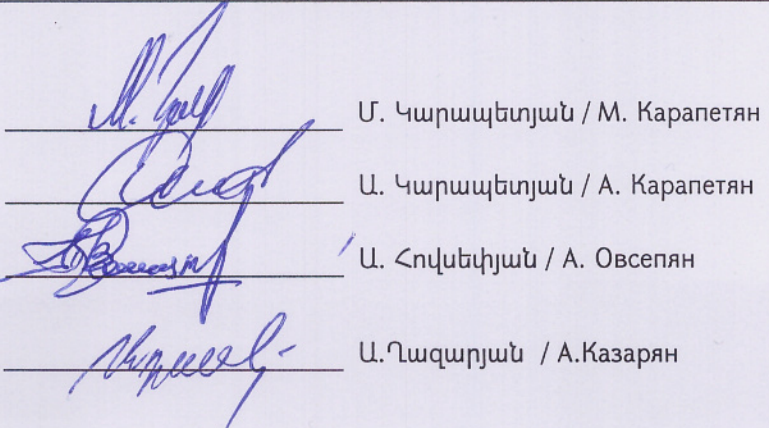 Մ. Կարապետյան / М. Карапетян
Ա. Կարապետյան / А. Карапетян
Ա. Հովսեփյան / А. Овсепян
Ա.Ղազարյան / А.Казарян